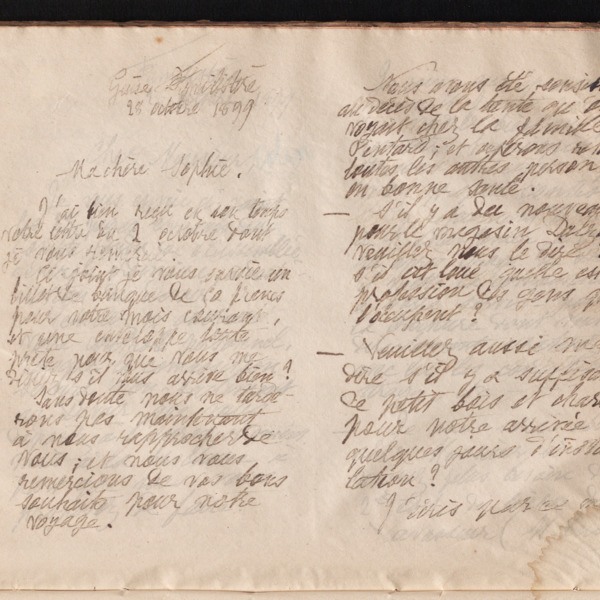 28 octobre 1899
Ma chère Sophie.
J'ai bien reçu en son temps
votre lettre du 2 octobre dont
je vous remercie.
Ci joint je vous
billet de banque de 50 francs
pour votre mois courant,
et une enveloppe toute
prête pour que vous me
disiez s'il vous arrive bien?
Sans doute nous ne tarde-
rons pas maintenant
à nous rapprocher de
vous; et nous vous
remercions de vos bons
souhaits pour notre
voyage.
Nous avons été
au décès de la tante que
voyait chez la famille
Pintard; et espérons
toutes les autres person
en bonne santé.
— S'il y a du nouveau
pour le magasin
veuillez nous le dire
s'il est loué quelle est
profession des gens
l'occupent?
— Veuillez aussi me
dire s'il y a suffisa
de petit bois et char
pour notre arrivée
quelques jours d'instal
lation?
J'écris par